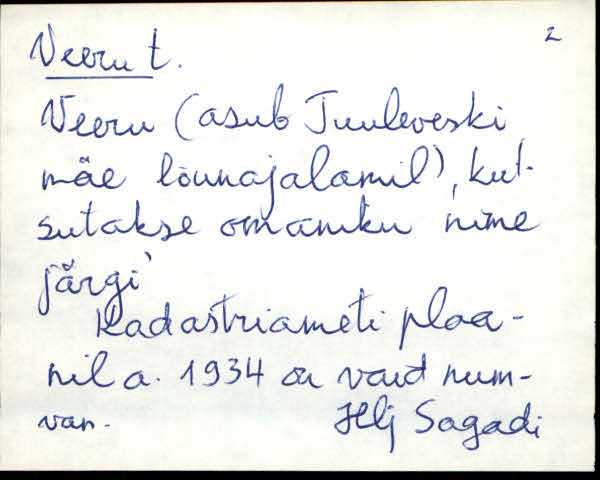 2
Veeru t.
Veeru (asub Tuuleveski
mäe lõunajalamil), kut-
sutakse omaniku nime
järgi
Kadastriameti plaa-
nil a. 1934 on vaid num-
Hlj Sagadi